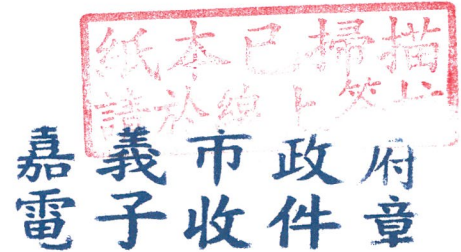 紙本已掃描
請於線上簽收
嘉義市政府
電子收件章